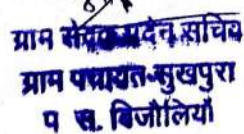 ग्राम सेवक पदेन सचिव
ग्राम पंचायत-सुखपुरा
प स. बिजौलियाँ